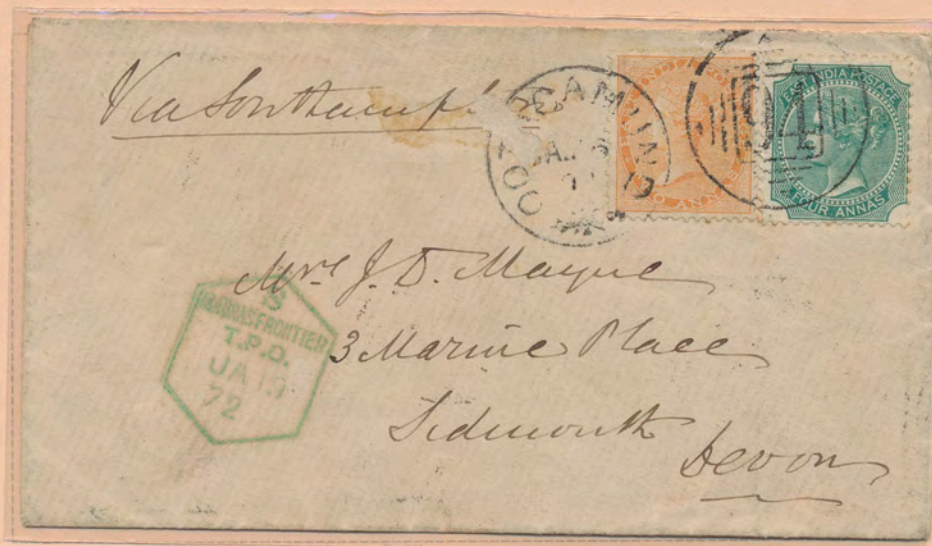 Via Southampt
OOTACAMUND
JA. 16
EAST INDIA POSTAGE
FOUR ANNAS
Mrs J. D. Mayne
3 Marine Place
Sidmouth
Devon
MADRAS FRONTIER
T.P.O.
JA 19
72